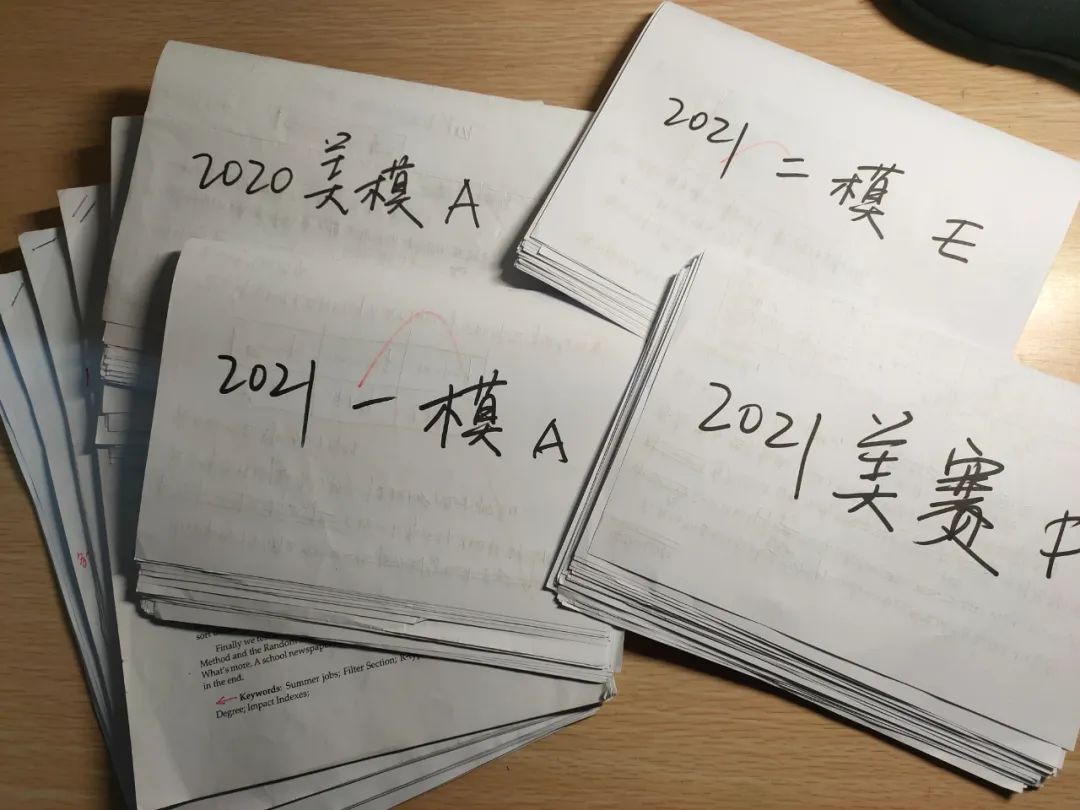 2020 美模 A
2021 二模 E
2021 一模 A
2021 美赛
Finally we
Method and the Random
What's more, A school newspape
in the end.
Keywords: Summer jobs; Filter Section;
Degree; Impact Indexes;